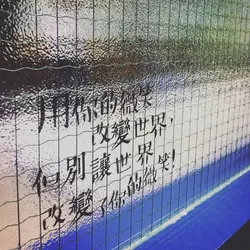 用你的微笑
改變世界,
但別讓世界
改變了你的微笑!